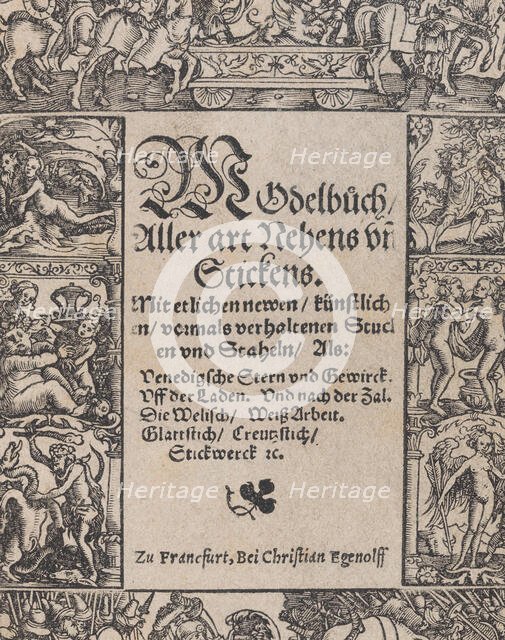 MOdelbůch/
Aller art Nehens vñ
Stickens.
Mit etlichen newen/ künstlich
en/ vormals verhaltenen Stuck
en vnd Staheln/ Als:
Venedigsche Stern vnd Gewirck.
Vff der Laden. Vnd nach der Zal.
Die Welisch/ Weiß Arbeit.
Glattstich/ Creutzstich/
Stickwerck ꝛc.
Zu Francfurt, Bei Christian Egenolff